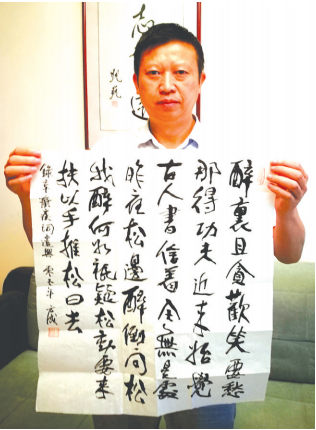 醉裏且貪歡笑要愁
那得功夫近来始覺
古人書信着全無是處
昨夜松邊醉倒问松
我醉何如祗疑松动要来
扶以手推松曰去
錄辛棄疾詞遣興
志